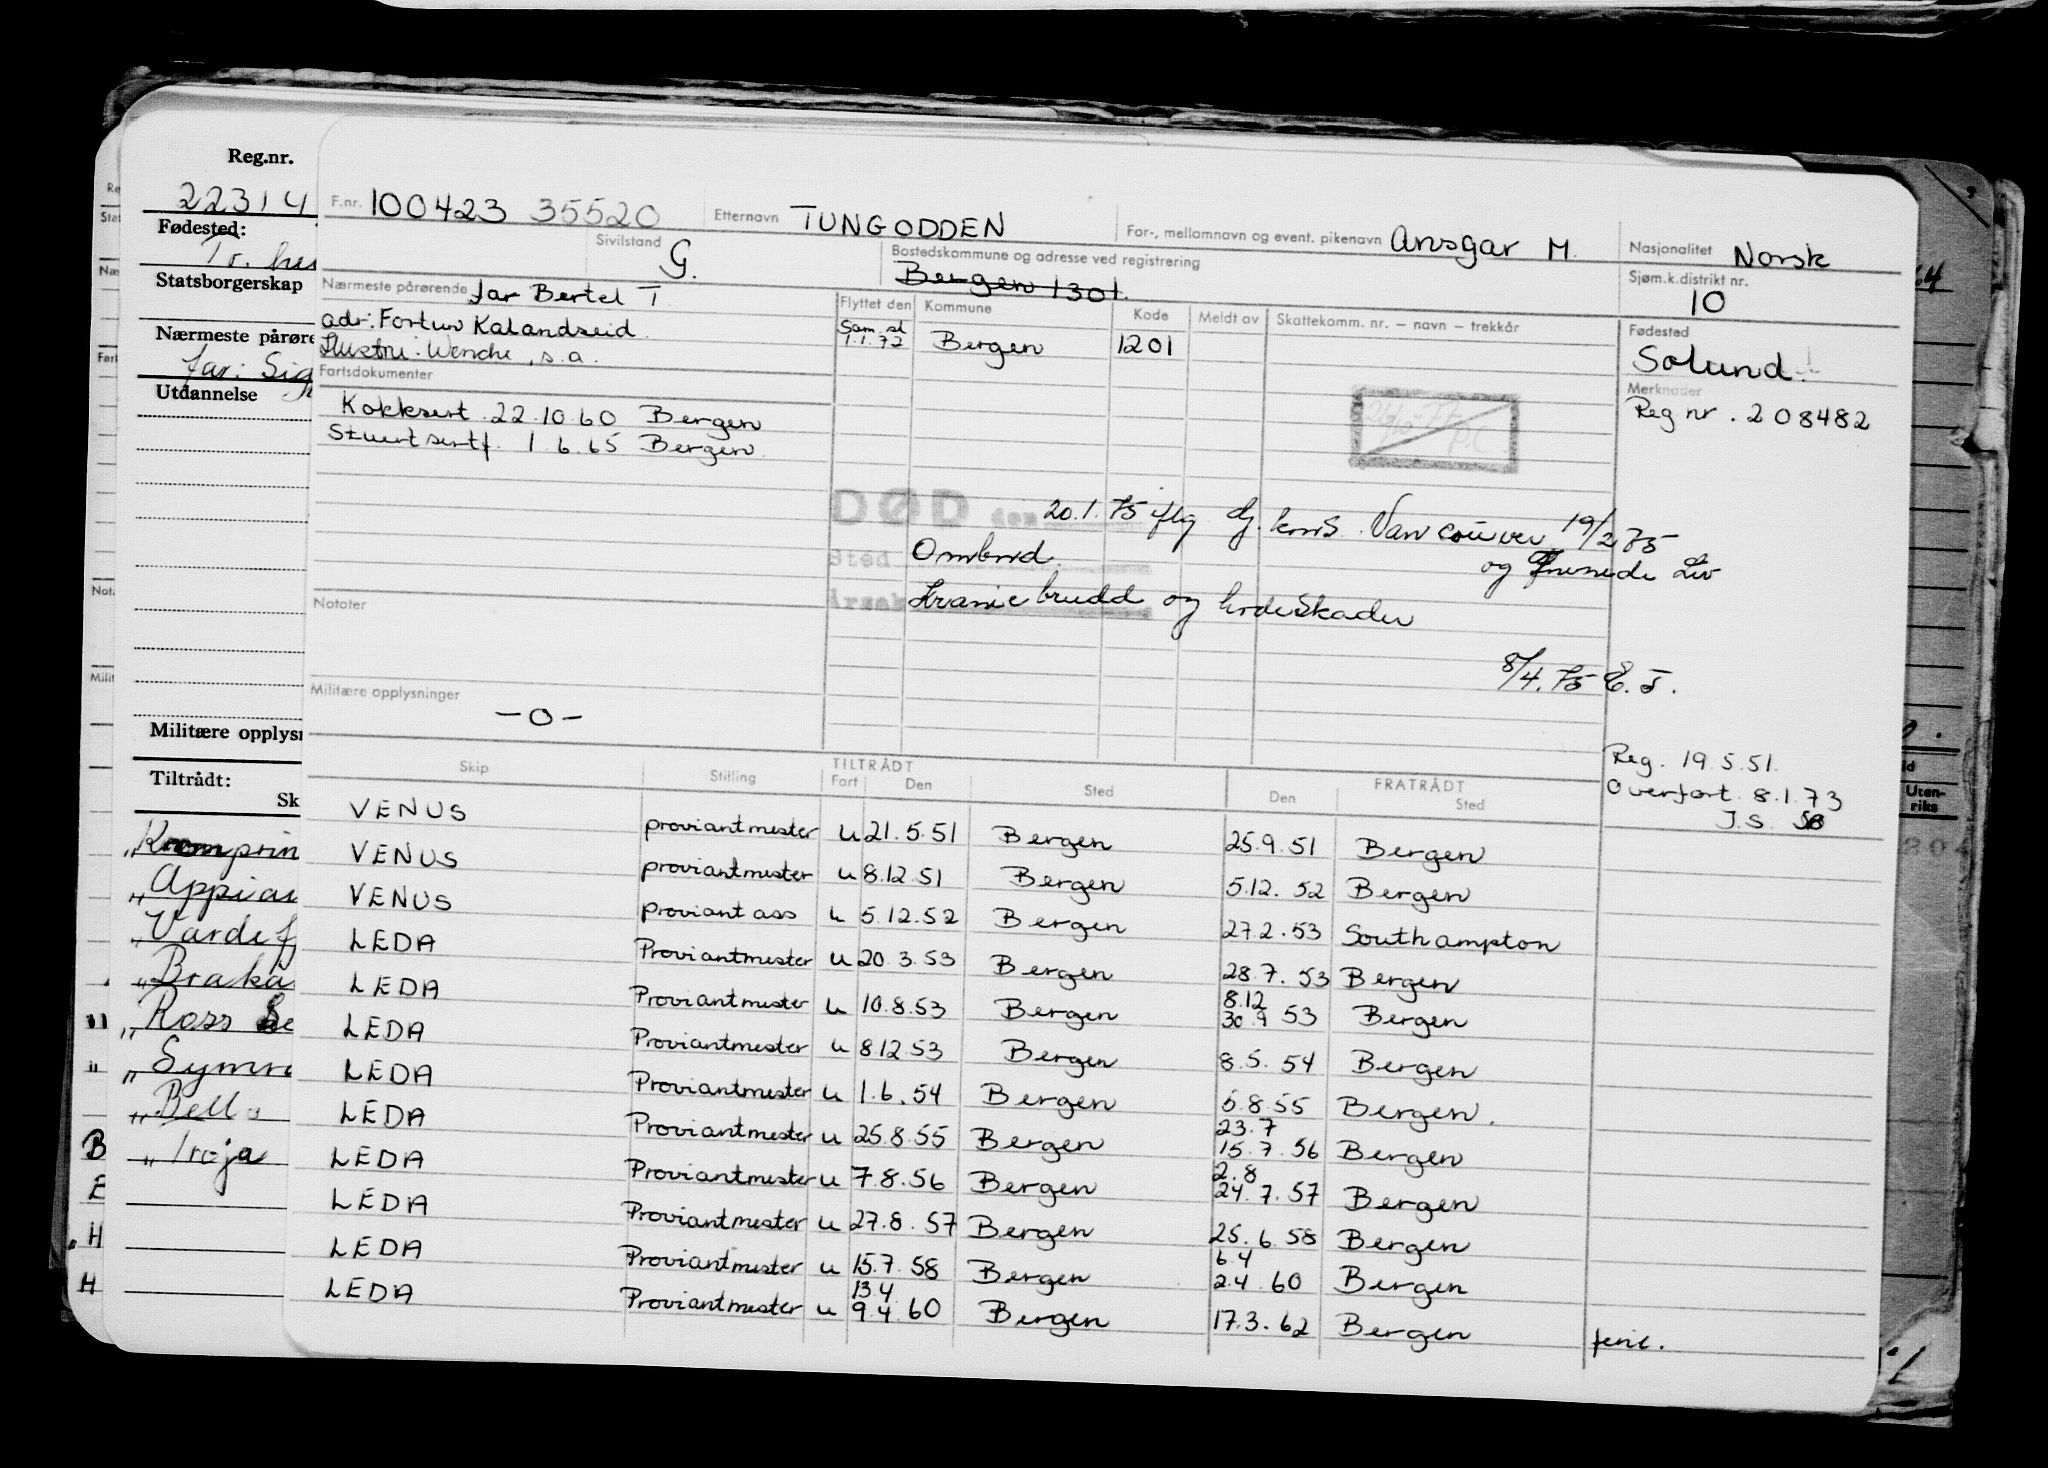 Reg.nr.
22314
Fødested:
Statsborgerskap
Nærmeste pårøre
far: Sig
Utdannelse
Militære opplysn
Tiltrådt:
Sk
„Kronprin
„Appian
„Vardef
„Braka
„Ross Se
„Symra
„Bella
„Troja
F.nr. 100423 35520 Etternavn TUNGODDEN For-, mellomnavn og event. pikenavn Ansgar M. Nasjonalitet Norsk
Sivilstand G. Bostedskommune og adresse ved registrering Bergen 1301. Sjøm.k.distrikt nr. 10
Nærmeste pårørende far Bertel T
adr: Fortun Kalandseid
Hustru: Wenche, s.a.
Flyttet den Kommune Kode Meldt av Skattekomm. nr. – navn – trekkår
Sam.sl 1.1.72 Bergen 1201
Fødested
Solund.
Merknader
Reg nr. 208482
Fartsdokumenter
Kokksert. 22.10.60 Bergen
Stuertsertf. 1.6.65 Bergen
DØD den 20.1.75 iflg dj. kons. Vancouver 19/2 75
Sted Ombord. og Liv
Årsak Kraniebrudd og hodeskader
8/4.75 E.J.
Notater
Militære opplysninger
-0-
Reg. 19.5.51.
Overført. 8.1.73
J.S. SB
Skip Stilling TILTRÅDT Fart Den Sted FRATRÅDT Den Sted
VENUS proviantmester u 21.5.51 Bergen 25.9.51 Bergen
VENUS proviantmester u 8.12.51 Bergen 5.12.52 Bergen
VENUS proviant ass u 5.12.52 Bergen 27.2.53 Southampton
LEDA Proviantmester u 20.3.53 Bergen 28.7.53 Bergen
LEDA Proviantmester u 10.8.53 Bergen 8.12 30.9 53 Bergen
LEDA Proviantmester u 8.12.53 Bergen 8.5.54 Bergen
LEDA Proviantmester u 1.6.54 Bergen 5.8.55 Bergen.
LEDA Proviantmester u 25.8.55 Bergen 23.7 15.7.56 Bergen
LEDA Proviantmester u 7.8.56 Bergen 2.8 24.7.57 Bergen
LEDA Proviantmester u 27.8.57 Bergen 25.6.58 Bergen
LEDA Proviantmester u 15.7.58 Bergen 6.4 2.4.60 Bergen
LEDA Proviantmester u 13.4 9.4.60 Bergen 17.3.62 Bergen ferie.